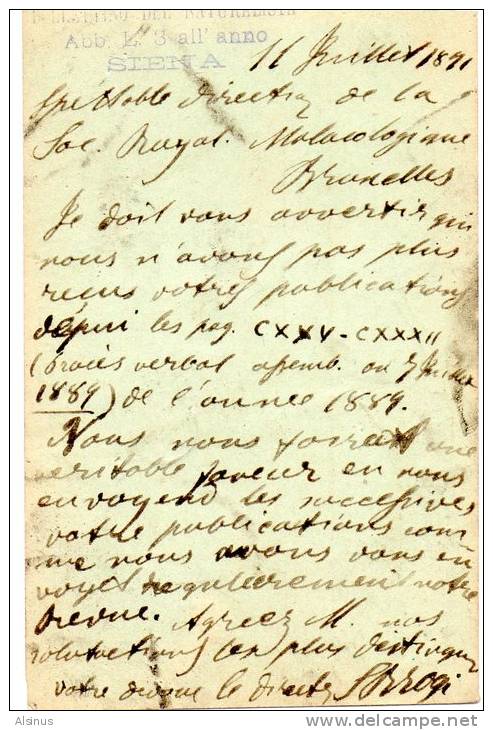 BOLLETTINO DEL NATURALISTA
Abb. L. 3 all'anno
SIENA
11 Juillet 1891
Spettable direction de la
Soc. Royal. Malacologique
Bruxelles
Je doit vous avvertir qui
nous n'avons pas plus
reçus votres publications
depui les pag. CXXV-CXXXII
(procés verbal assemb. du 7 Juillet
1889) de l'année 1889.
Nous nous forret une
veritable faveur en nous
envoyend les successives
votre publications com
me nous avons vous en
voyet regulierement notre
revue. Agreez M. nos
salutations les plus distingues
votre le direct. S Brogi
Alsinus
delcampe.net